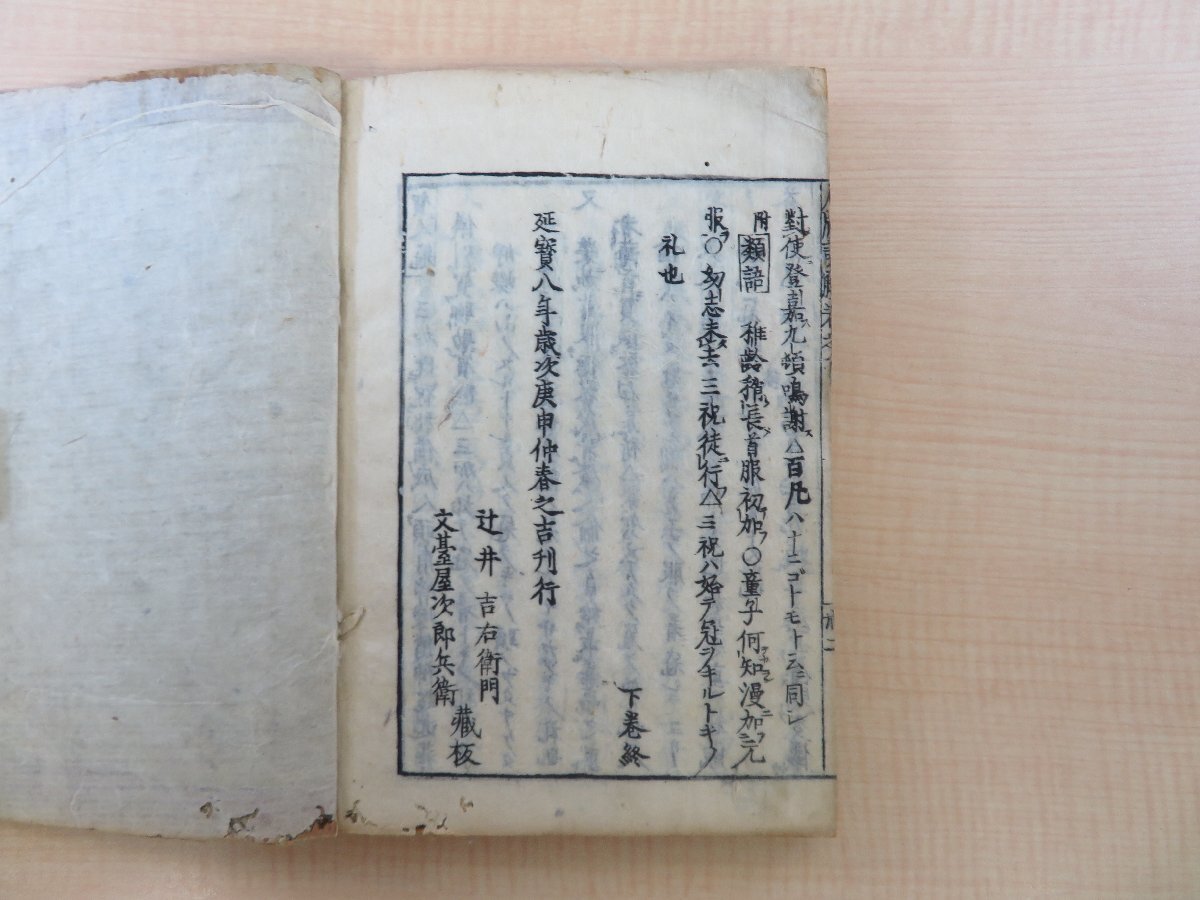 對使登嘉九頓鳴謝△百凡ハ十ニゴトモト云ニ同シ
附 類語 稚齡稍長首服初加○童子何知漫加元
服○幼志未去三祝徒行△三祝ハ始テ冠ヲキルトキノ
礼也
下巻終
延寶八年歳次庚申仲春之吉刊行
辻井吉右衛門
文臺屋次郎兵衛
藏板